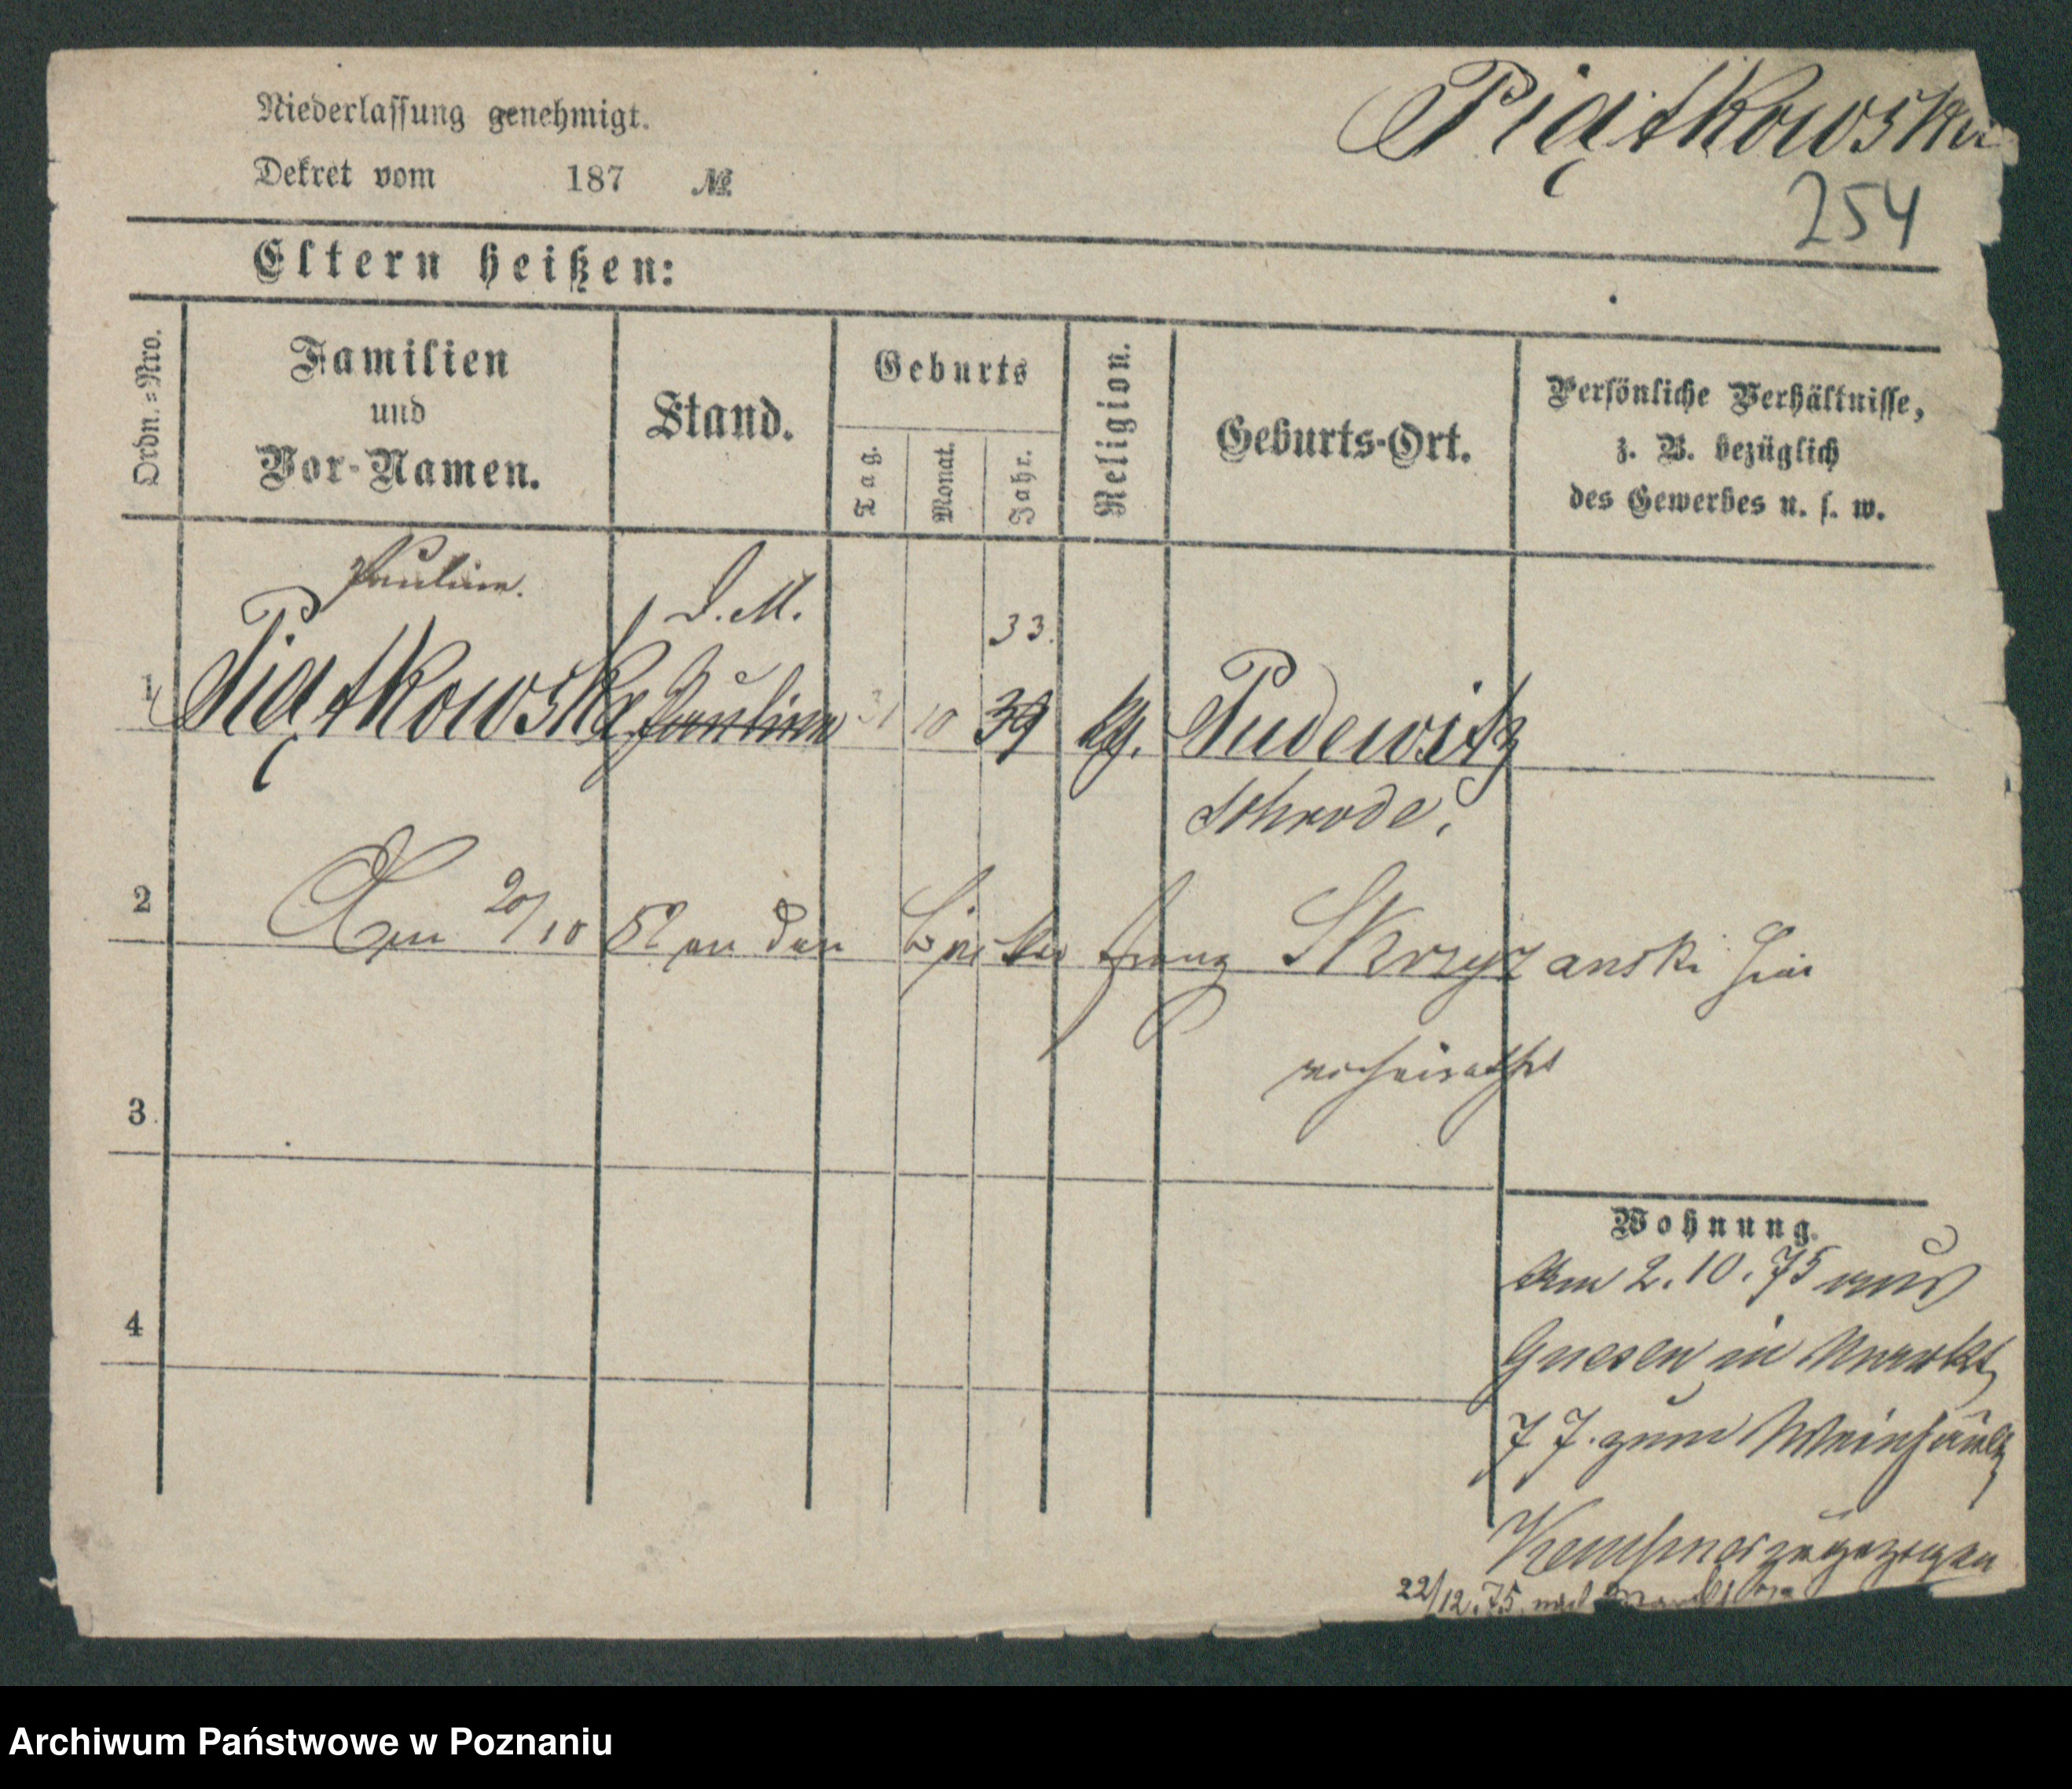 Niederlassung genehmigt.
Dekret vom 187 №
Piątkowska
254
Eltern heißen:
Ordn.=Nro.
Familien
und
Vor-Namen.
Stand.
Geburts
Tag.
Monat.
Jahr.
Religion.
Geburts-Ort.
Persönliche Verhältnisse,
z. B. bezüglich
des Gewerbes u. s. w.
Pauline.
D. M.
33.
1 Piątkowska Pauline 31 10 39 kg. Pudewitz
Schroda.
2 Am 20/10 52 an den Franz Skrzyzanski hier
verheirathet
3.
4
Wohnung.
Am 2.10.75 aus
Gnesen in Markt
77. zum
Kempner zugezogen
22/12.75. nach
Archiwum Państwowe w Poznaniu